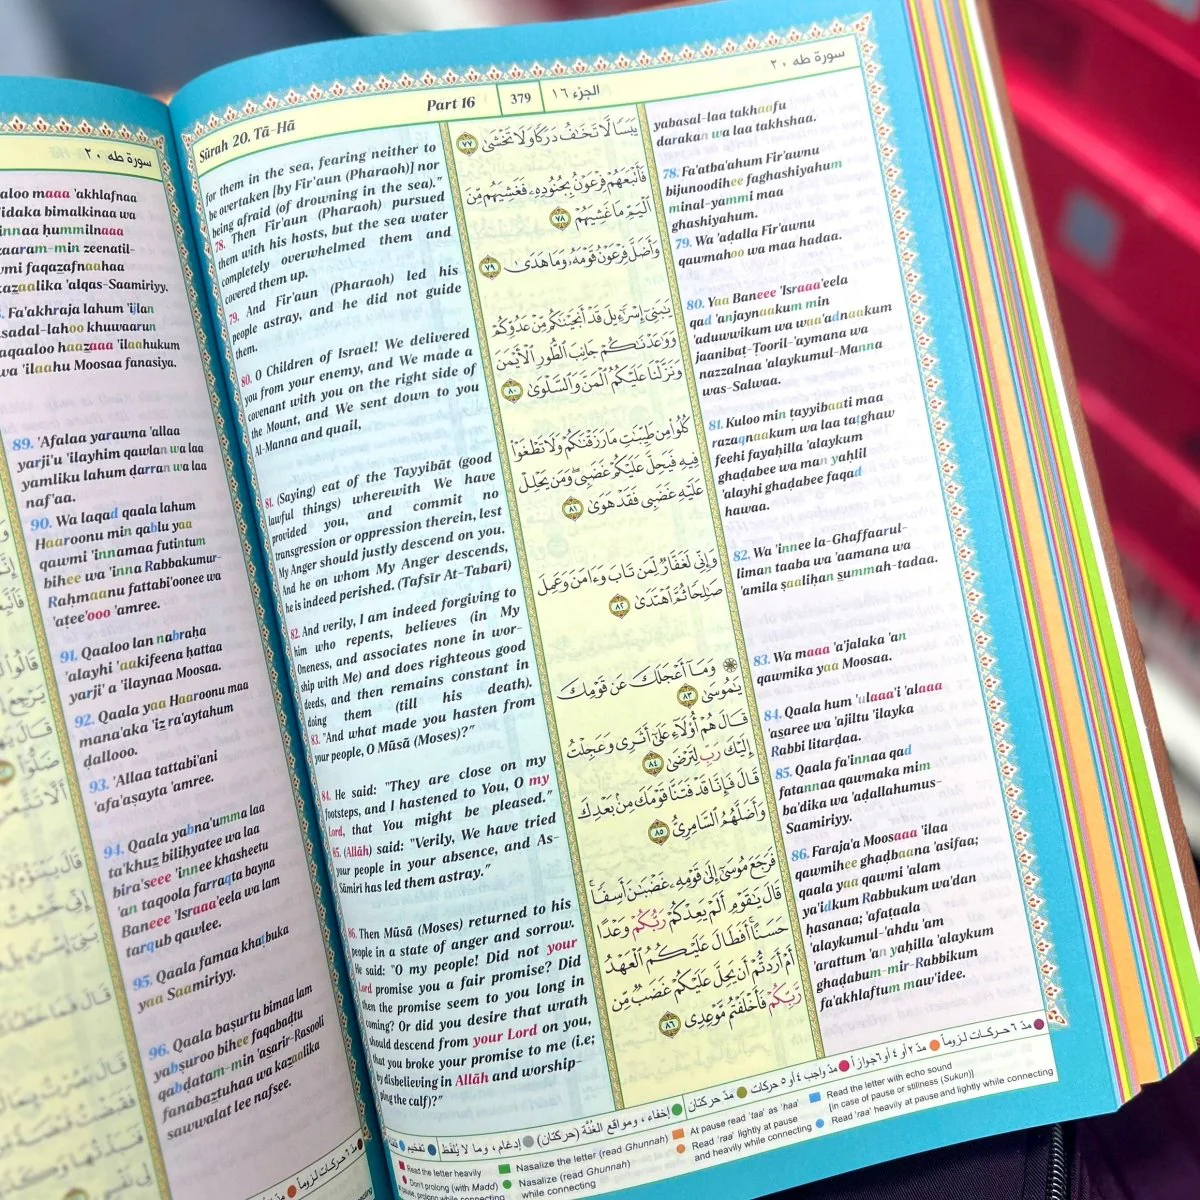 سورة طه ٢٠
aloo maaa 'akhlafnaa
'idaka bimalkinaa wa
innaa ḥummilnaaa
zaaram-min zeenatil-
wmi faqaẕafnaahaa
kaẕaalika 'alqas-Saamiriyy.
Fa'akhraja lahum 'ijlan
sadal-lahoo khuwaarun
aqaaloo haaẕaaa 'ilaahukum
wa 'ilaahu Moosaa fanasiya.
89. 'Afalaa yarawna 'allaa
yarji'u 'ilayhim qawlan wa laa
yamliku lahum ḍarran wa laa
naf'aa.
90. Wa laqad qaala lahum
Haaroonu min qablu yaa
qawmi 'innamaa futintum
bihee wa 'inna Rabbakumur-
Raḥmaanu fattabi'oonee wa
'aṭee'ooo 'amree.
91. Qaaloo lan nabraḥa
'alayhi 'aakifeena ḥattaa
yarji' a 'ilaynaa Moosaa.
92. Qaala yaa Haaroonu maa
mana'aka 'iẕ ra'aytahum
ḍallooo.
93. 'Allaa tattabi'ani
'afa'aṣayta 'amree.
94. Qaala yabna'umma laa
ta'khuẕ bilihyatee wa laa
bira'seee 'innee khasheetu
'an taqoola farraqta bayna
Baneee 'Israaa'eela wa lam
tarqub qawlee.
95. Qaala famaa khaṭbuka
yaa Saamiriyy.
96. Qaala baṣurtu bimaa lam
yabṣuroo bihee faqabaḍtu
qabḍatam-min 'aṣarir-Rasooli
fanabaẕtuhaa wa kaẕaalika
sawwalat lee nafsee.
Sûrah 20. Tā-Hā
Part 16
379
الجزء ١٦
سورة طه ٢٠
for them in the sea, fearing neither to
be overtaken [by Fir'aun (Pharaoh)] nor
being afraid (of drowning in the sea)."
78. Then Fir'aun (Pharaoh) pursued
them with his hosts, but the sea water
completely overwhelmed them and
covered them up.
79. And Fir'aun (Pharaoh) led his
people astray, and he did not guide
them.
80. O Children of Israel! We delivered
you from your enemy, and We made a
covenant with you on the right side of
the Mount, and We sent down to you
Al-Manna and quail,
81. (Saying) eat of the Tayyibāt (good
lawful things) wherewith We have
provided you, and commit no
transgression or oppression therein, lest
My Anger should justly descend on you.
And he on whom My Anger descends,
he is indeed perished. (Tafsir At-Tabari)
82. And verily, I am indeed forgiving to
him who repents, believes (in My
Oneness, and associates none in wor-
ship with Me) and does righteous good
deeds, and then remains constant in
doing them (till his death).
83. "And what made you hasten from
your people, O Mūsā (Moses)?"
84. He said: "They are close on my
footsteps, and I hastened to You, O my
Lord, that You might be pleased."
85. (Allāh) said: "Verily, We have tried
your people in your absence, and As-
Sāmiri has led them astray."
86. Then Mūsā (Moses) returned to his
people in a state of anger and sorrow.
He said: "O my people! Did not your
Lord promise you a fair promise? Did
then the promise seem to you long in
coming? Or did you desire that wrath
should descend from your Lord on you,
that you broke your promise to me (i.e;
by disbelieving in Allāh and worship-
ping the calf)?"
يَبَسًا لَّا تَخَٰفُ دَرَكًا وَلَا تَخْشَىٰ ٧٧
فَأَتْبَعَهُمْ فِرْعَوْنُ بِجُنُودِهِۦ فَغَشِيَهُم مِّنَ
ٱلْيَمِّ مَا غَشِيَهُمْ ٧٨
وَأَضَلَّ فِرْعَوْنُ قَوْمَهُۥ وَمَا هَدَىٰ ٧٩
يَٰبَنِىٓ إِسْرَٰٓءِيلَ قَدْ أَنجَيْنَٰكُم مِّنْ عَدُوِّكُمْ
وَوَٰعَدْنَٰكُمْ جَانِبَ ٱلطُّورِ ٱلْأَيْمَنَ
وَنَزَّلْنَا عَلَيْكُمُ ٱلْمَنَّ وَٱلسَّلْوَىٰ ٨٠
كُلُوا۟ مِن طَيِّبَٰتِ مَا رَزَقْنَٰكُمْ وَلَا تَطْغَوْا۟
فِيهِ فَيَحِلَّ عَلَيْكُمْ غَضَبِى وَمَن يَحْلِلْ
عَلَيْهِ غَضَبِى فَقَدْ هَوَىٰ ٨١
وَإِنِّى لَغَفَّارٌ لِّمَن تَابَ وَءَامَنَ وَعَمِلَ
صَٰلِحًا ثُمَّ ٱهْتَدَىٰ ٨٢
وَمَآ أَعْجَلَكَ عَن قَوْمِكَ
يَٰمُوسَىٰ ٨٣
قَالَ هُمْ أُو۟لَآءِ عَلَىٰٓ أَثَرِى وَعَجِلْتُ
إِلَيْكَ رَبِّ لِتَرْضَىٰ ٨٤
قَالَ فَإِنَّا قَدْ فَتَنَّا قَوْمَكَ مِنۢ بَعْدِكَ
وَأَضَلَّهُمُ ٱلسَّامِرِىُّ ٨٥
فَرَجَعَ مُوسَىٰٓ إِلَىٰ قَوْمِهِۦ غَضْبَٰنَ أَسِفًا
قَالَ يَٰقَوْمِ أَلَمْ يَعِدْكُمْ رَبُّكُمْ وَعْدًا
حَسَنًا أَفَطَالَ عَلَيْكُمُ ٱلْعَهْدُ
أَمْ أَرَدتُّمْ أَن يَحِلَّ عَلَيْكُمْ غَضَبٌ مِّن
رَّبِّكُمْ فَأَخْلَفْتُم مَّوْعِدِى ٨٦
yabasal-laa takhaafu
darakan wa laa takhshaa.
78. Fa'atba'ahum Fir'awnu
bijunoodihee faghashiyahum
minal-yammi maa
ghashiyahum.
79. Wa 'aḍalla Fir'awnu
qawmahoo wa maa hadaa.
80. Yaa Baneee 'Israaa'eela
qad 'anjaynaakum min
'aduwwikum wa waa'adnaakum
jaanibaṭ-Ṭooril-'aymana wa
nazzalnaa 'alaykumul-Manna
was-Salwaa.
81. Kuloo min tayyibaati maa
razaqnaakum wa laa taṭghaw
feehi fayaḥilla 'alaykum
ghaḍabee wa man yaḥlil
'alayhi ghaḍabee faqad
hawaa.
82. Wa 'innee la-Ghaffaarul-
liman taaba wa 'aamana wa
'amila ṣaaliḥan ṣummah-tadaa.
83. Wa maaa 'a'jalaka 'an
qawmika yaa Moosaa.
84. Qaala hum 'ulaaa'i 'alaaa
'aṣaree wa 'ajiltu 'ilayka
Rabbi litarḍaa.
85. Qaala fa'innaa qad
fatannaa qawmaka mim
ba'dika wa 'aḍallahumus-
Saamiriyy.
86. Faraja'a Moosaaa 'ilaa
qawmihee ghaḍbaana 'asifaa;
qaala yaa qawmi 'alam
ya'idkum Rabbukum wa'dan
ḥasanaa; 'afaṭaala
'alaykumul-'ahdu 'am
'arattum 'an yaḥilla 'alaykum
ghaḍabum-mir-Rabbikum
fa'akhlaftum maw'idee.
مدّ ٦ حركـات لـزوماً مدّ ٢ أو ٤ أو ٦ جوازاً مدّ واجب ٤ أو ٥ حركات مدّ حركتان
إخفاء، ومواقع الغُنَّة (حركتان) إدغام، وما لا يُلفَظ تفخيم
Read the letter heavily
Nasalize the letter (read Ghunnah)
At pause read 'taa' as 'haa'
Read the letter with echo sound
(in case of pause or stillness (Sukun)]
Don't prolong (with Madd)
Nasalize (read Ghunnah)
while connecting
Read 'raa' lightly at pause
and heavily while connecting
Read 'raa' heavily at pause and lightly while connecting